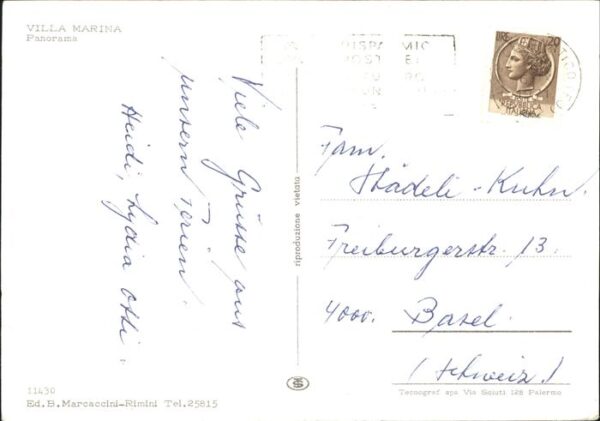 VILLA MARINA
Panorama
Viele Grüsse aus
unsern Ferien.
Heidi, Lydia
riproduzione vietata
LIRE 20
Fam.
Hädeli-Kuhn.
Freiburgerstr. 13.
4000. Basel.
(Schweiz.)
11430
Ed. B. Marcaccini-Rimini Tel. 25815
Tecnograf spa Via Sciuti 128 Palermo